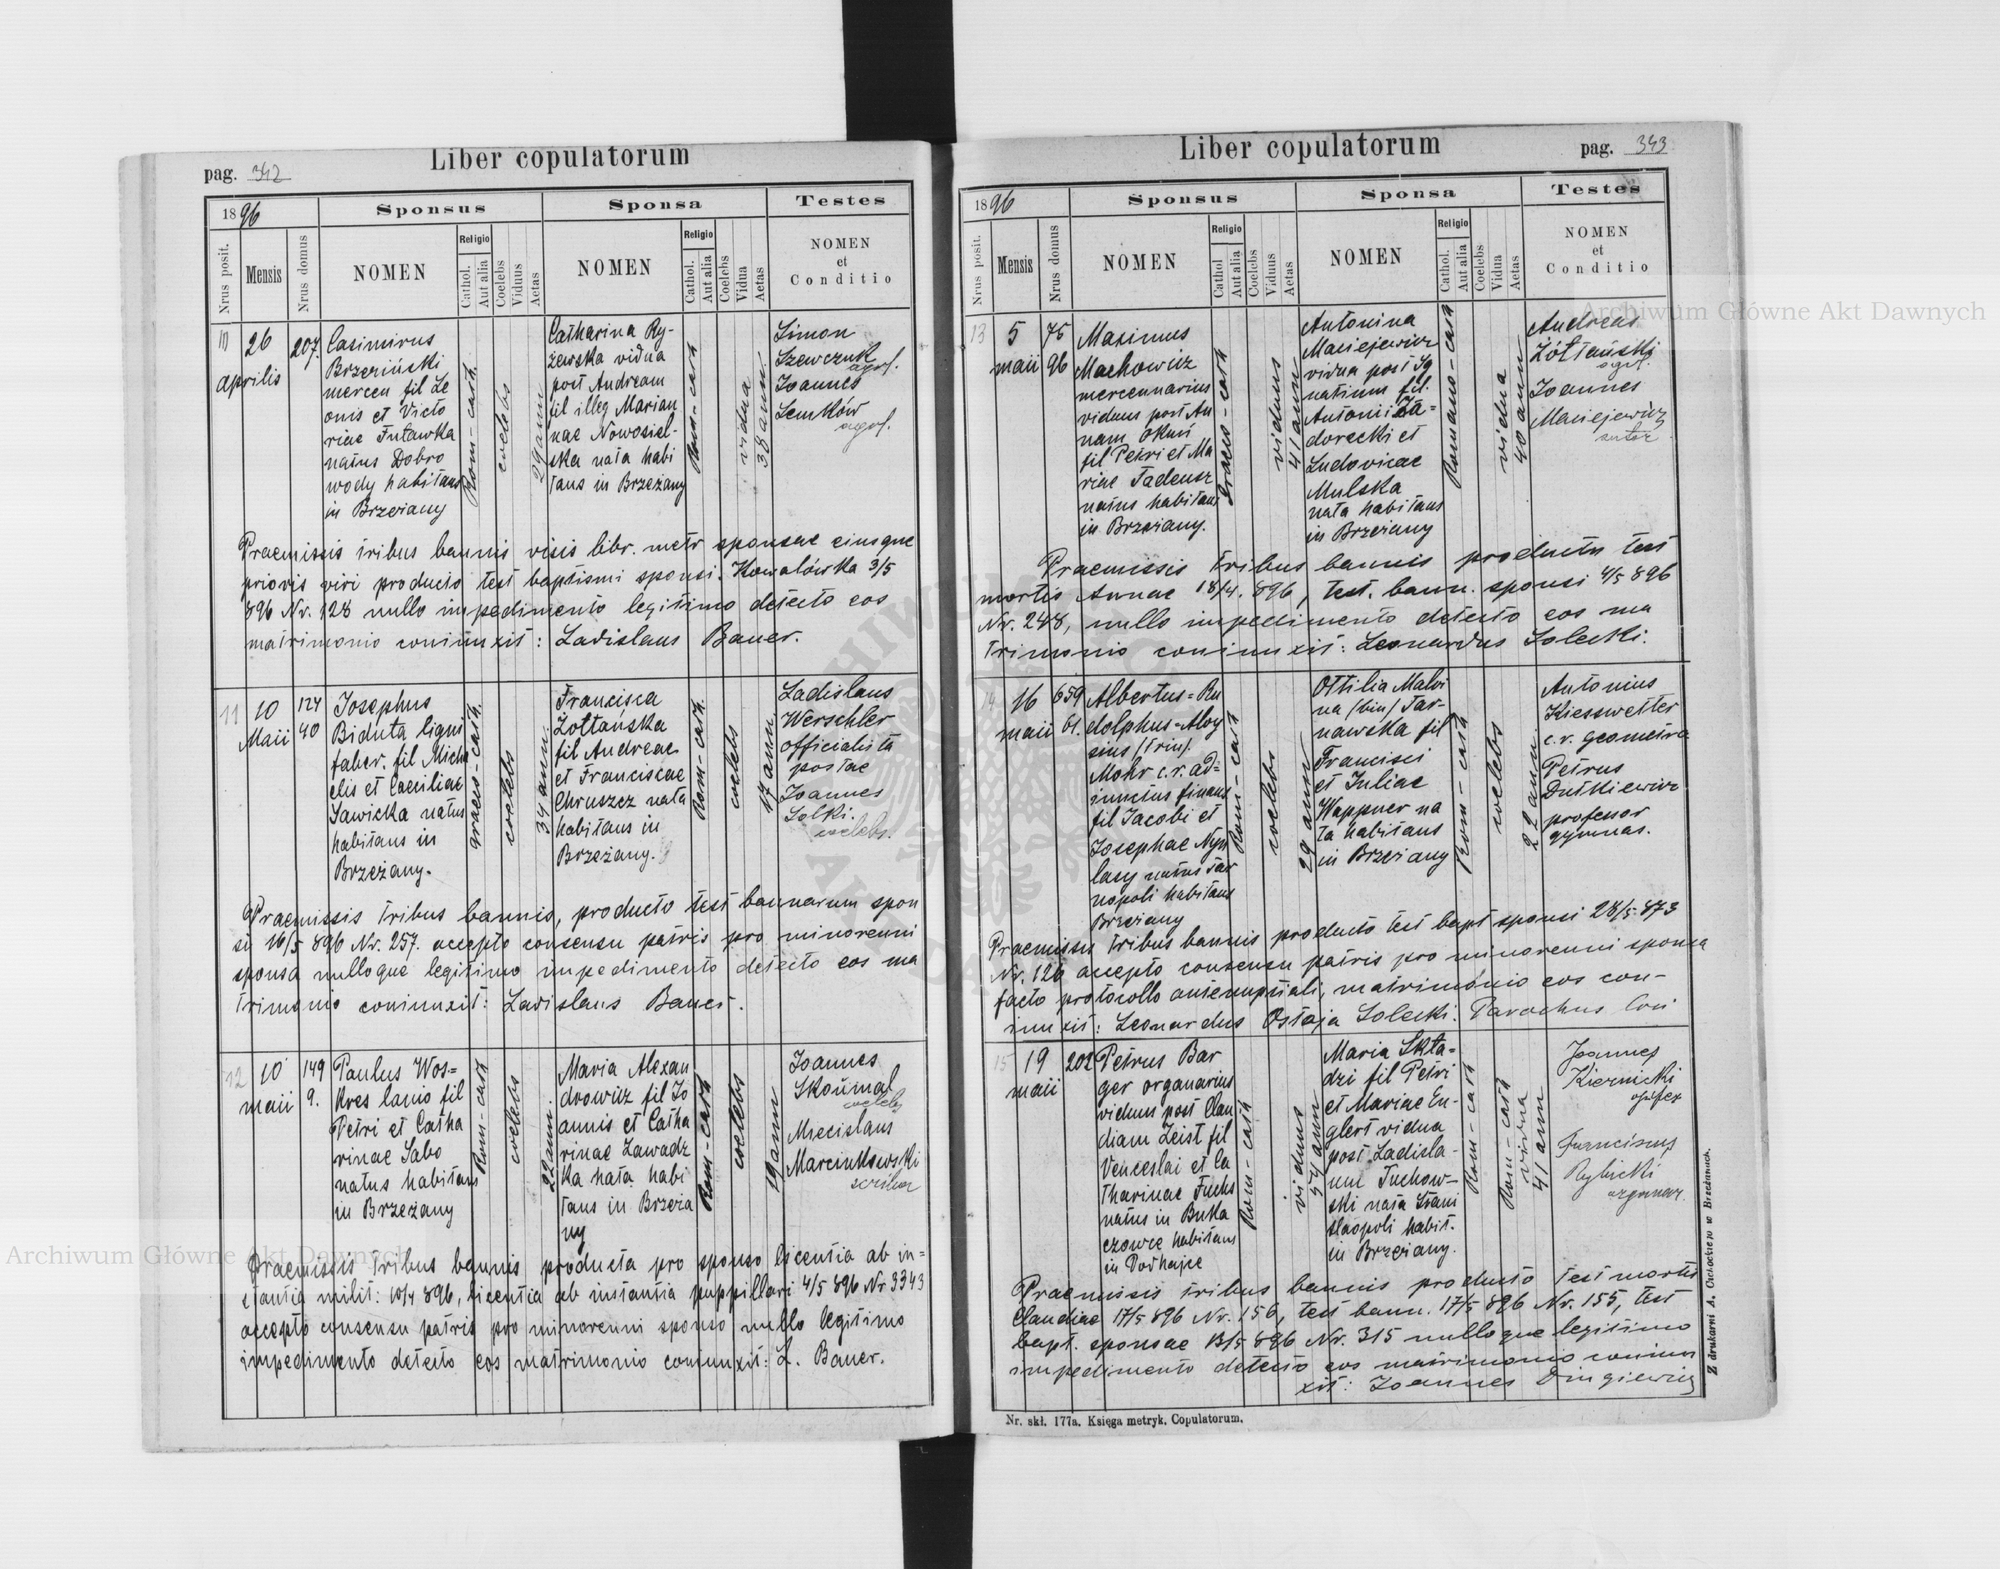 Liber copulatorum
pag. 342
1896
Sponsus
Sponsa
Testes
Nrus posit.
Mensis
Nrus domus
NOMEN
Religio
Cathol.
Aut alia
Coelebs
Viduus
Aetas
NOMEN
Religio
Cathol.
Aut alia
Coelebs
Vidua
Aetas
NOMEN
et
Conditio
10
26
aprilis
207.
Casimirus
Brzeziński
mercen fil Le
onis et Victo
riae Futawka
natus Dobro
wody habitans
in Brzeżany
Rom-cath.
coelebs
29 ann
Catharina Ry-
żewska vidua
post Andream
fil illeg Marian
nae Nowosiel-
ska nata habi
tans in Brzeżany
Rom-cath
vidua
38 ann.
Simon
Szewczuk
agrl.
Joannes
Senków
agrl.
Praemissis tribus bannis visis libr. metr sponsae eiusque
prioris viri producto test baptismi sponsi. Kowalówka 3/5
896 Nr. 128 nullo impedimento legitimo detecto eos
matrimonio coniunxit: Ladislaus Bauer.
11
10
Maii
124
40
Josephus
Biduta ligni
faber. fil Micha
elis et Caeciliae
Sawicka natus
habitans in
Brzeżany.
graeco-cath.
coelebs
34 ann.
Francisca
Żołtańska
fil Andreae
et Franciscae
Chruszcz nata
habitans in
Brzeżany.
Rom-cath.
coelebs
17 ann
Ladislaus
Werschler
officialista
postae
Joannes
Solki.
coelebs.
Praemissis tribus bannis, producto test bannorum spon
si 10/5 896 Nr. 257. accepto consensu patris pro minorenni
sponsa nulloque legitimo impedimento detecto eos ma
trimonio coniunxit: Ladislaus Bauer.
12
10
maii
149
9.
Paulus Wos=
kres lanio fil
Petri et Catha
rinae Sabo
natus habitans
in Brzeżany
Rom-cath
coelebs
22 ann.
Maria Alexan
drowicz fil Jo
annis et Catha
rinae Zawadz
ka nata habi
tans in Brzeża
ny
Rom-cath
coelebs
19 ann
Joannes
Skoumal
coelebs
Miecislaus
Marcinkowski
scriba
Praemissis tribus bannis producta pro sponso licentia ab in=
stantia milit: 10/4 896, licentia ab instantia puppillari 4/5 896 Nr 3343
accepto consensu patris pro minorenni sponso nullo legitimo
impedimento detecto eos matrimonio coniunxit: L. Bauer.
Liber copulatorum
pag. 343
1896
Sponsus
Sponsa
Testes
Nrus posit.
Mensis
Nrus domus
NOMEN
Religio
Cathol
Aut alia
Coelebs
Viduus
Aetas
NOMEN
Religio
Cathol.
Aut alia
Coelebs
Vidua
Aetas
NOMEN
et
Conditio
13
5
maii
75
96
Maximus
Machowicz
mercennarius
viduus post An
nam Okuń
fil Petri et Ma
riae Tadeusz
natus habitans
in Brzeżany.
Graeco-cath
viduus
41 ann
Antonina
Maciejewicz
vidua post Ig
natium fil.
Antonii Za=
dorecki et
Ludovicae
Mulska
nata habitans
in Brzeżany
Romano-cath
vidua
40 ann
Andreas
Żółtański
agrl.
Joannes
Maciejewicz
sutor
Praemissis tribus bannis producto test
mortis Annae 18/4. 896, test. bann. sponsi 4/5 896
Nr. 248, nullo impedimento detecto eos ma
trimonio coniunxit: Leonardus Solecki.
14
16
maii
659
61.
Albertus=Ru
dolphus=Aloy
sius /trin/.
Mohr c.r. ad=
iunctus finans
fil Jacobi et
Josephae Nyn
lasy natus Tar
nopoli habitans
Brzeżany
Rom-cath
coelebs
29 ann
Ottilia Malvi
na /bin/ Tar-
nawska fil
Francisci
et Juliae
Wappner na
ta habitans
in Brzeżany
Rom-cath
coelebs
22 ann.
Antonius
Kiesswetter
c.r. geometra
Petrus
Dutkiewicz
professor
gymnas.
Praemissis tribus bannis producto test bapt sponsi 28/5 873
Nr. 126 accepto consensu patris pro minorenni sponsa
facto protocollo antenuptiali, matrimonio eos con-
iunxit: Leonardus Ostoja Solecki. Parochus loci
15
19
maii
202
Petrus Bar
ger organarius
viduus post Clau
diam Zeist fil
Venceslai et Ca
tharinae Fuchs
natus in Buka
czowce habitans
in Podhajce
Rom-cath
viduus
54 ann
Maria Skła=
dzi fil Petri
et Mariae En
glert vidua
post Ladisla-
um Tuchow-
ski nata Stani
slaopoli habit.
in Brzeżany.
Rom-cath
vidua
41 ann
Joannes
Kiernicki
opifex
Franciscus
Rybicki
organar.
Praemissis tribus bannis producto test mortis
Claudiae 17/5 896 Nr. 156, test bann. 17/5 896 Nr. 155, test
bapt. sponsae 13/5 896 Nr. 315 nulloque legitimo
impedimento detecto eos matrimonio coniun
xit: Joannes Dingiewicz
Nr. skł. 177a. Księga metryk. Copulatorum.
Z drukarni A. Cichockiego w Brzeżanach.
Archiwum Główne Akt Dawnych
Archiwum Główne Akt Dawnych